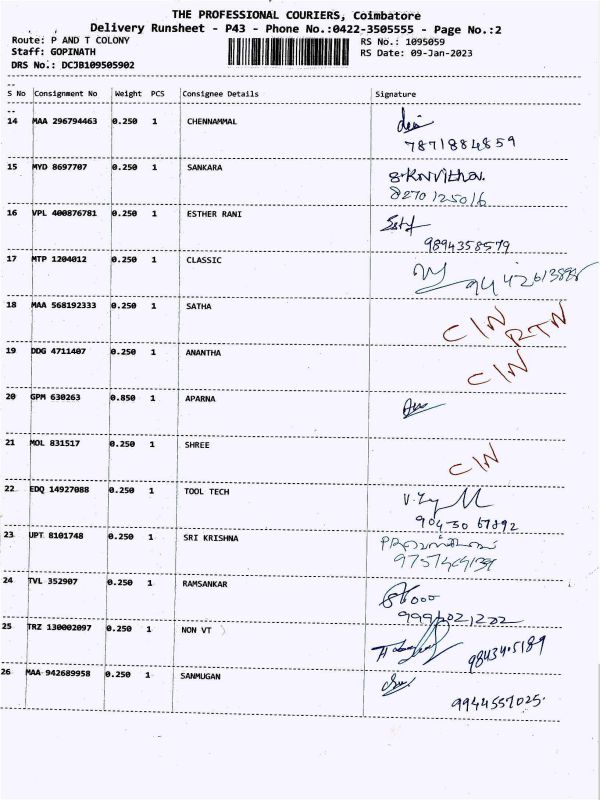 THE PROFESSIONAL COURIERS, Coimbatore
Delivery Runsheet - P43 - Phone No.:0422-3505555 - Page No.:2
Route: P AND T COLONY RS No.: 1095059
Staff: GOPINATH RS Date: 09-Jan-2023
DRS No.: DCJB109505902
S No Consignment No Weight PCS Consignee Details Signature
14 MAA 296794463 0.250 1 CHENNAMMAL
7871884859
15 MYD 8697707 0.250 1 SANKARA
8270125016
16 VPL 400876781 0.250 1 ESTHER RANI
9894358579
17 MTP 1204012 0.250 1 CLASSIC
18 MAA 568192333 0.250 1 SATHA C/N RTN
19 DDG 4711407 0.250 1 ANANTHA C/N
20 GPM 630263 0.850 1 APARNA
21 MOL 831517 0.250 1 SHREE C/N
22 EDQ 14927088 0.250 1 TOOL TECH
90430 67892
23 UPT 8101748 0.250 1 SRI KRISHNA
24 TVL 352907 0.250 1 RAMSANKAR
25 TRZ 130002097 0.250 1 NON VT
26 MAA 942689958 0.250 1 SANMUGAN
9944557025